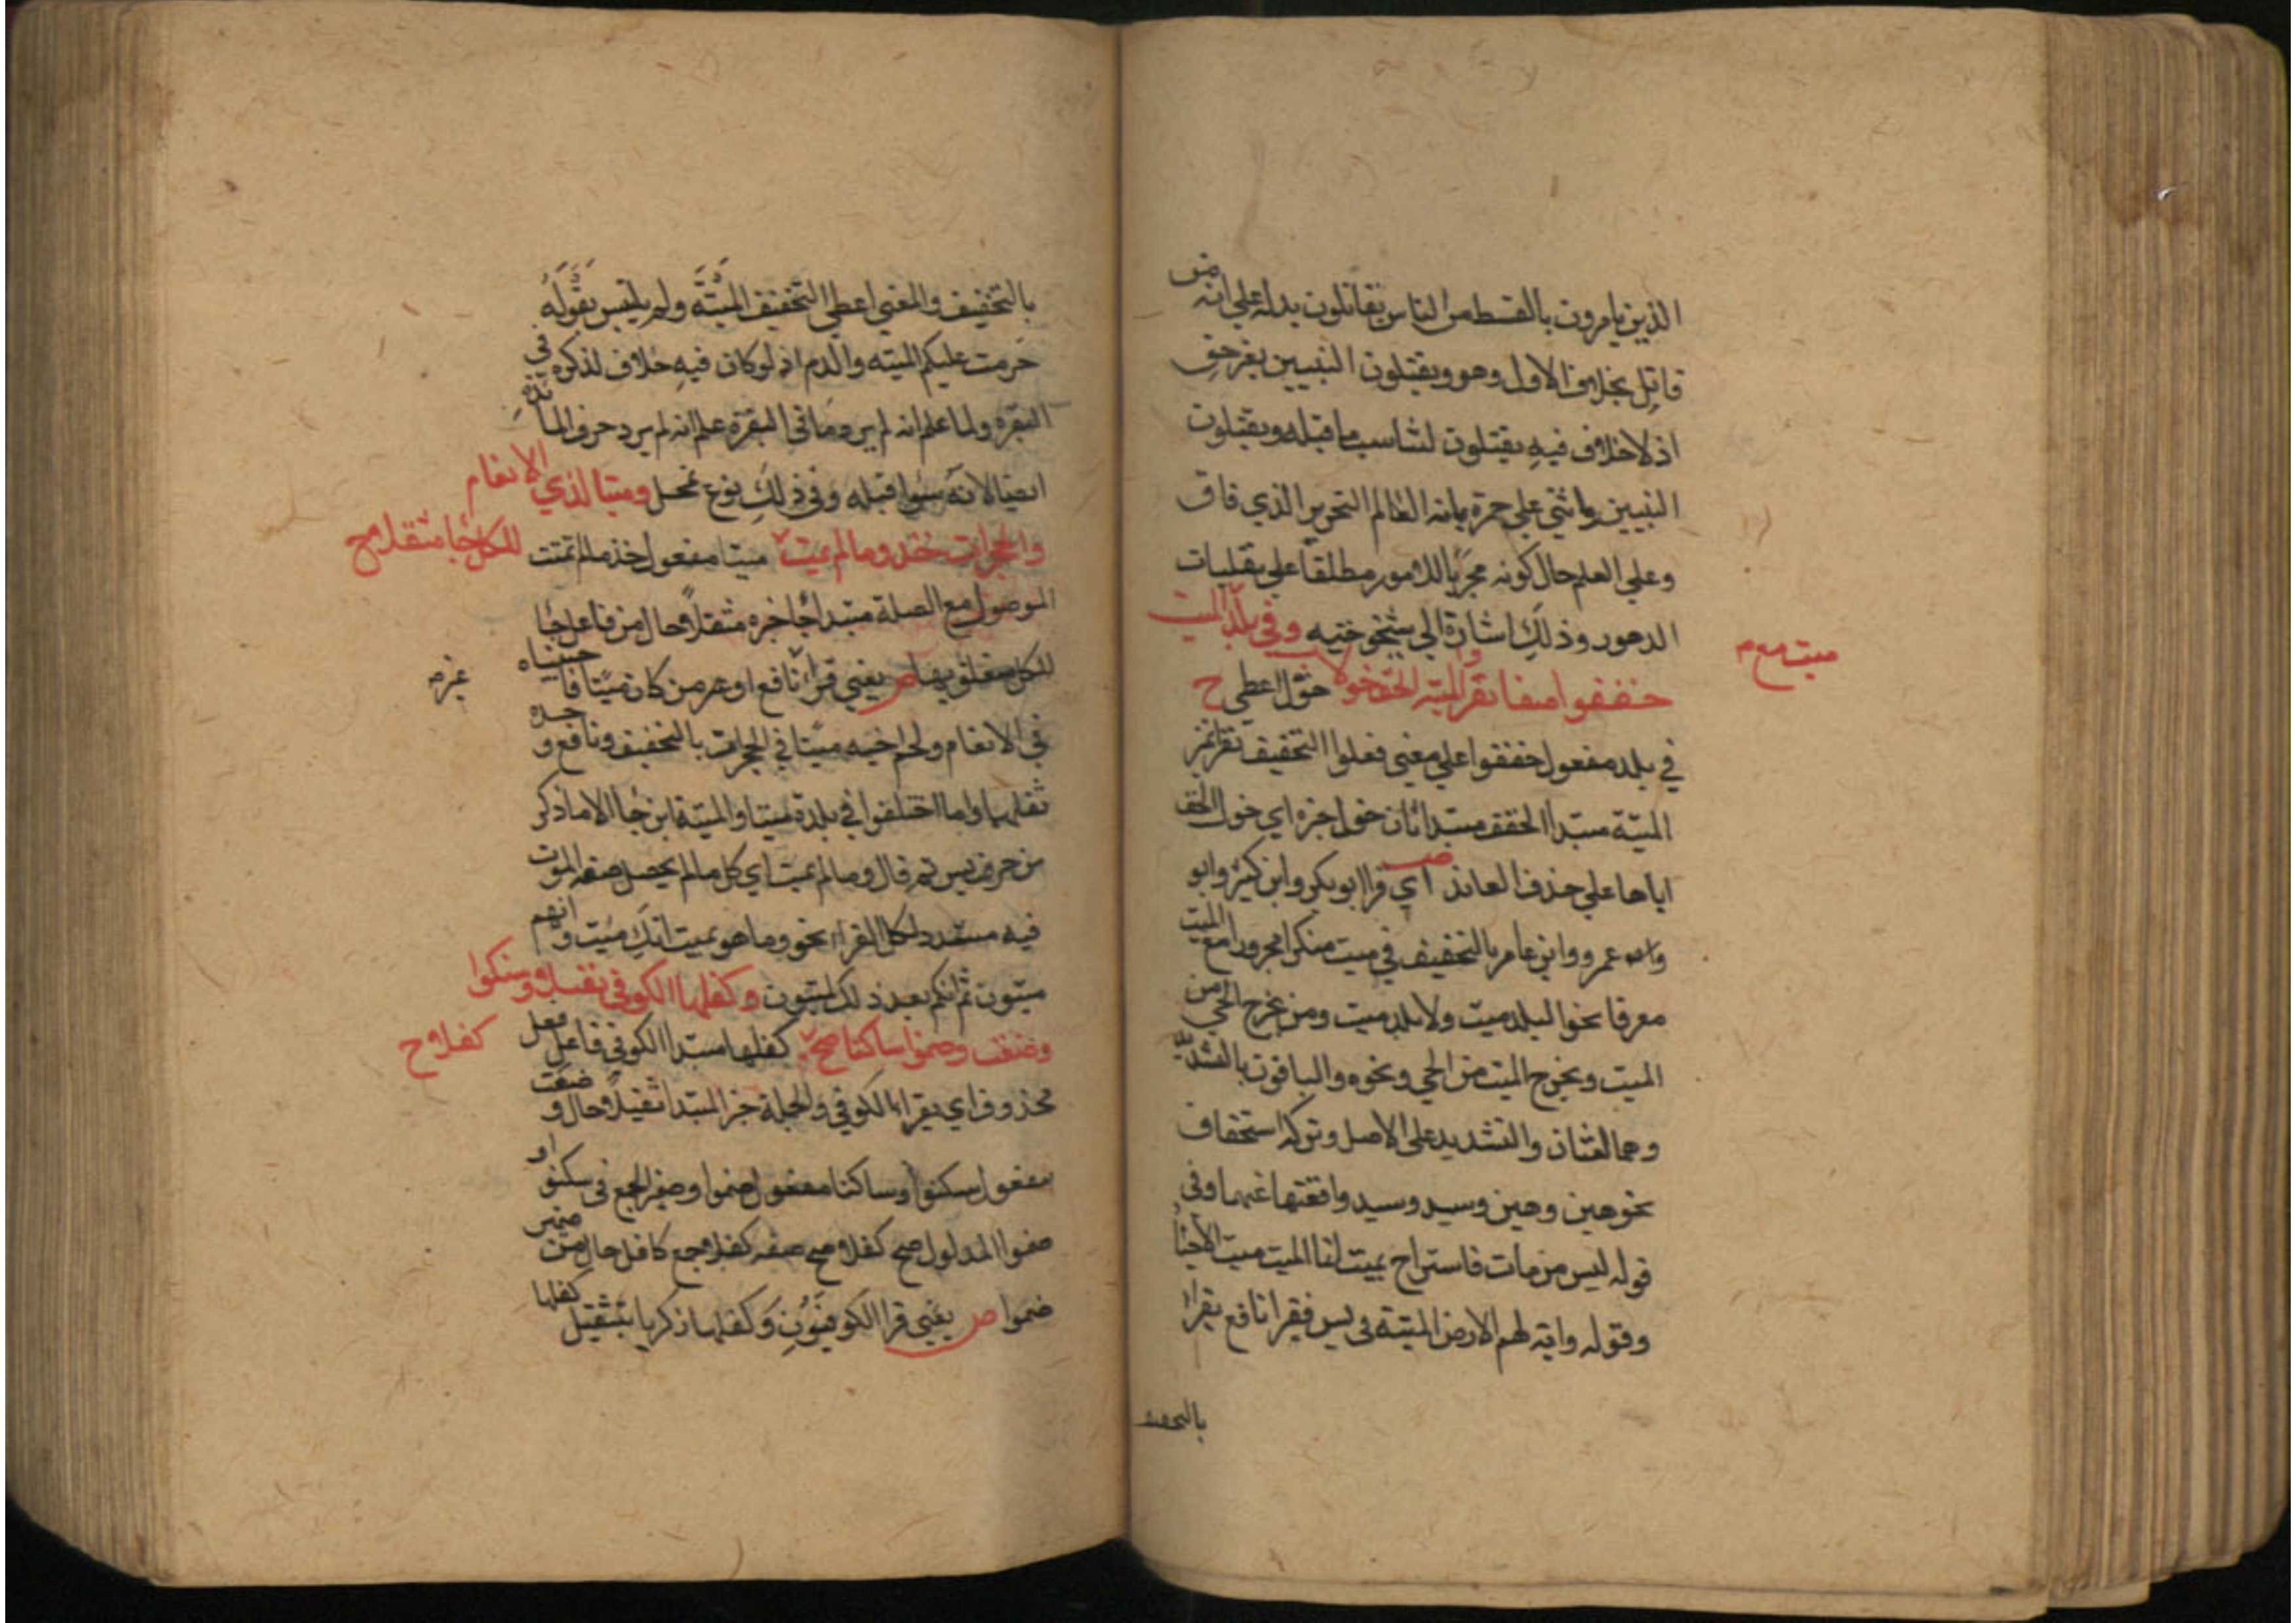 الذين يامرون بالقسط من الناس يقاتلون يدل على انه من
قاتل بخلاف الاول وهو ويقتلون النبيين بغير حق
اذ لا خلاف فيه يقتلون لتناسب ما قبله ويقتلون
النبيين واثني على حمزة بانه العالم النحرير الذي فاق
وعلي العلم حال كونه مجربا للامور مطلقا علي تقلبات
الدهور وذلك اشارة الي شيخوخيته وفي بلد الميت
ميت مع م
خففوا صفا نفرا والميتة الخف خولا حول اعطي ح
في بلد مفعول خففوا علي معني فعلوا التخفيف نفرا تميز
الميتة مبتدا الخف مبتدا ثان خول خبره اي خول الخف
اياها علي حذف العائد ص اي قرا ابو بكر وابن كثير وابو
عمرو وابن عامر بالتخفيف في ميت منكرا مجرورا مع الميت
معرفا نحو البلد ميت ولا بلد ميت ومن يخرج الحي من
الميت ويخرج الميت من الحي ونحوه والباقون بالتشديد
وهما لغتان والتشديد علي الاصل وتركه استخفاف
نحو هين وهين وسيد وسيد وافقتها غيرها وفي
قوله ليس من مات فاستراح بميت انما الميت ميت الاحياء
وقوله واية لهم الارض الميتة في يس فيقرا نافع يقرا
بالتخفيف
بالتخفيف والمعني اعطي التخفيف الميتة ولم يلتبس بقوله
حرمت عليكم الميته والدم اذ لو كان فيه خلاف لذكره في
البقره ولما علم انه لم يرد ما في البقرة علم انه لم يرد حرف المائدة
ايضا لانه سوا قبله وفي ذلك نوع تمحل وميتا لذي الانعام
والحجرات خذ وما لم يمت ميتا مفعول خذ ما لم تمت
للكل جا مثقلا مح
الموصول مع الصلة مبتدا جا خبره مثقلا حال من فاعل جا
للكل متعلق بها ص يعني قرا نافع اومن كان ميتا فاحييناه
في الانعام ولحم اخيه ميتا في الحجرات بالتخفيف ونافع وحده
غيره
ثقلهما واما اختلفوا في بلدة ميتا والميتة اين جا الا ما ذكر
من حرف يس ثم قال وما لم يمت اي كل ما لم يحصل صفه الموت
فيه مشدد لكل القراء نحو وما هو بميت انك ميت وانهم
ميتون ثم انكم بعد ذلك لميتون وكفلها الكوفي ثقيلا وسكنوا
وضعت وضموا ساكنا صح كفلها مبتدا الكوفي فاعل فعل
كفلا ح
محذوف اي يقرا الكوفي والجملة خبر المبتدا ثقيلا حال وضعت
مفعول سكنوا وساكنا مفعول ضموا وضمير الجمع في سكنوا او
ضموا المدلول صح كفلا صح صفه كفلا جمع كافل حال من ضمير
ضموا ص يعني قرا الكوفيون وكفلها زكريا بتثقيل كفلها